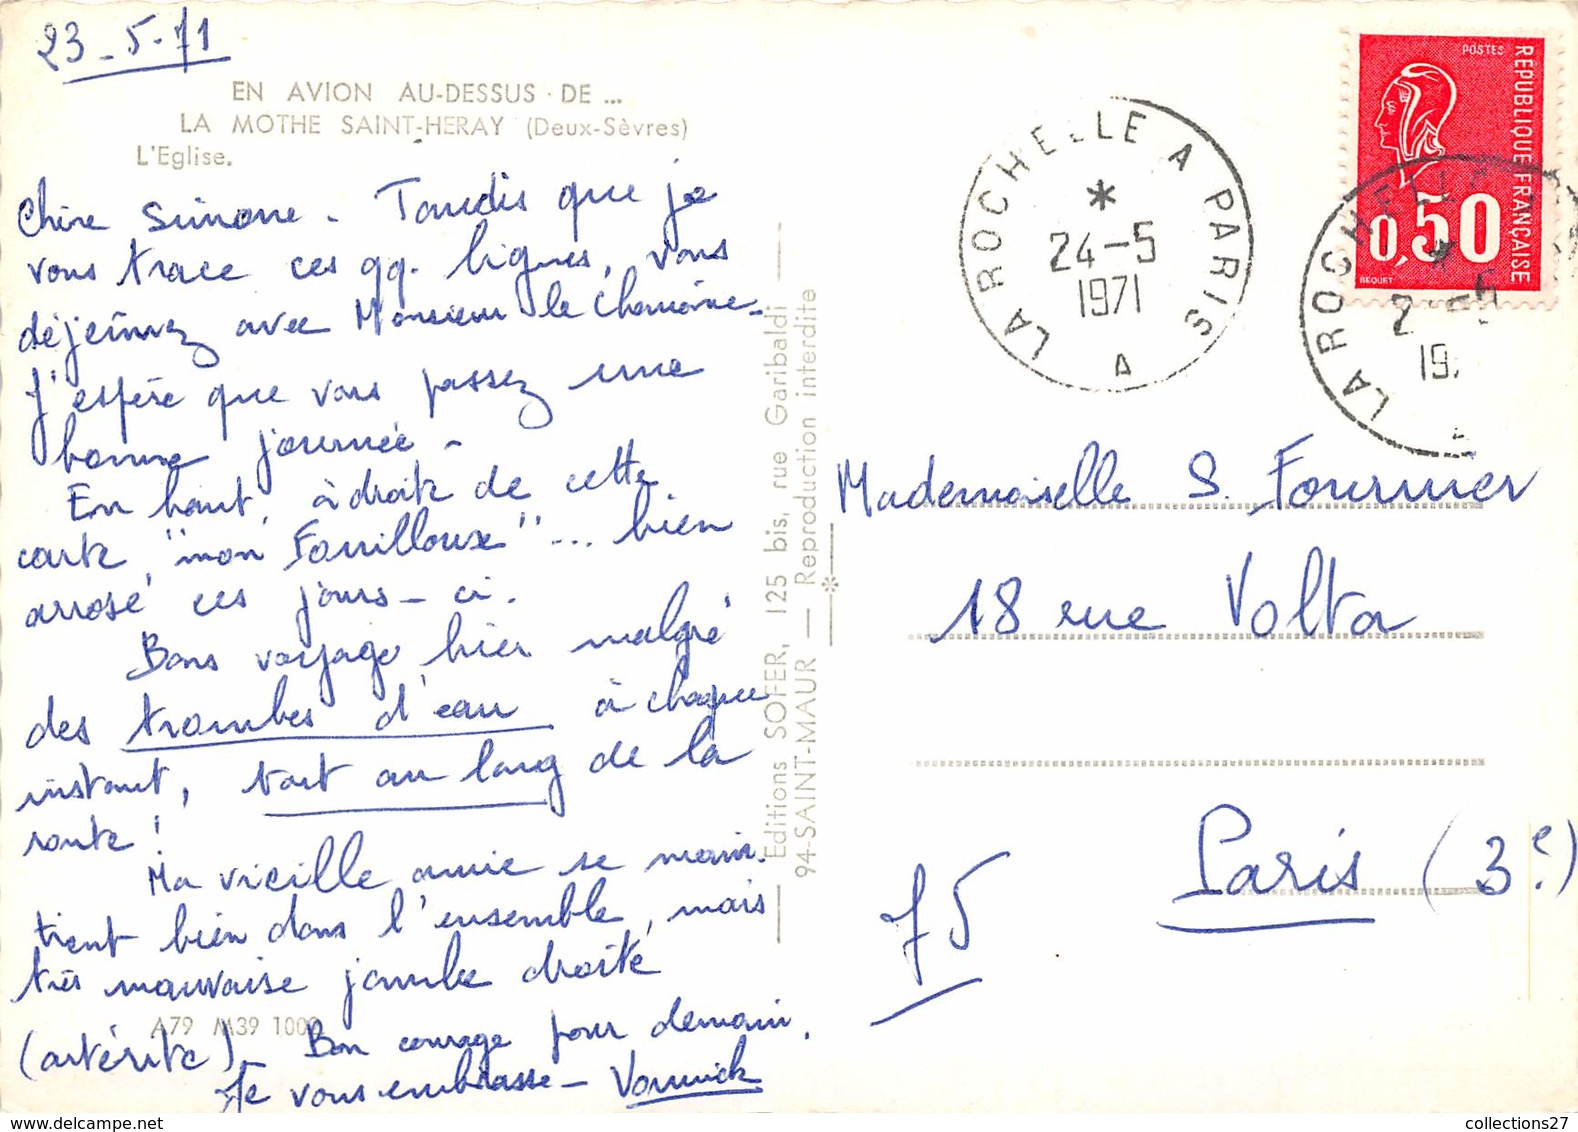 23-5-71
EN AVION AU-DESSUS DE ...
LA MOTHE SAINT-HERAY (Deux-Sèvres)
L'Eglise.
Chère Simone - Tandis que je
vous trace ces qq. lignes, vous
déjeûnez avec Monsieur le Chanoine -
J'espère que vous passez une
bonne journée -
En haut, à droite de cette
carte, "mon Fouilloux" ... bien
arrosé ces jours-ci.
Bons voyage hier malgré
des trombes d'eau à chaque
instant, tout au long de la
route !
Ma vieille amie se main-
tient bien dans l'ensemble, mais
très mauvaise jambe droite
(artérite) - Bon courage pour demain.
Je vous embrasse - Yannick
A79 M39 1000
Editions SOFER, 125 bis, rue Garibaldi
94-SAINT-MAUR — Reproduction interdite
LA ROCHELLE A PARIS
24-5
1971
A
POSTES
REPUBLIQUE FRANÇAISE
0,50
BEQUET
LA ROCHELLE
2 -5
19
Mademoiselle S. Fournier
18 rue Volta
75 Paris (3e)
collections27